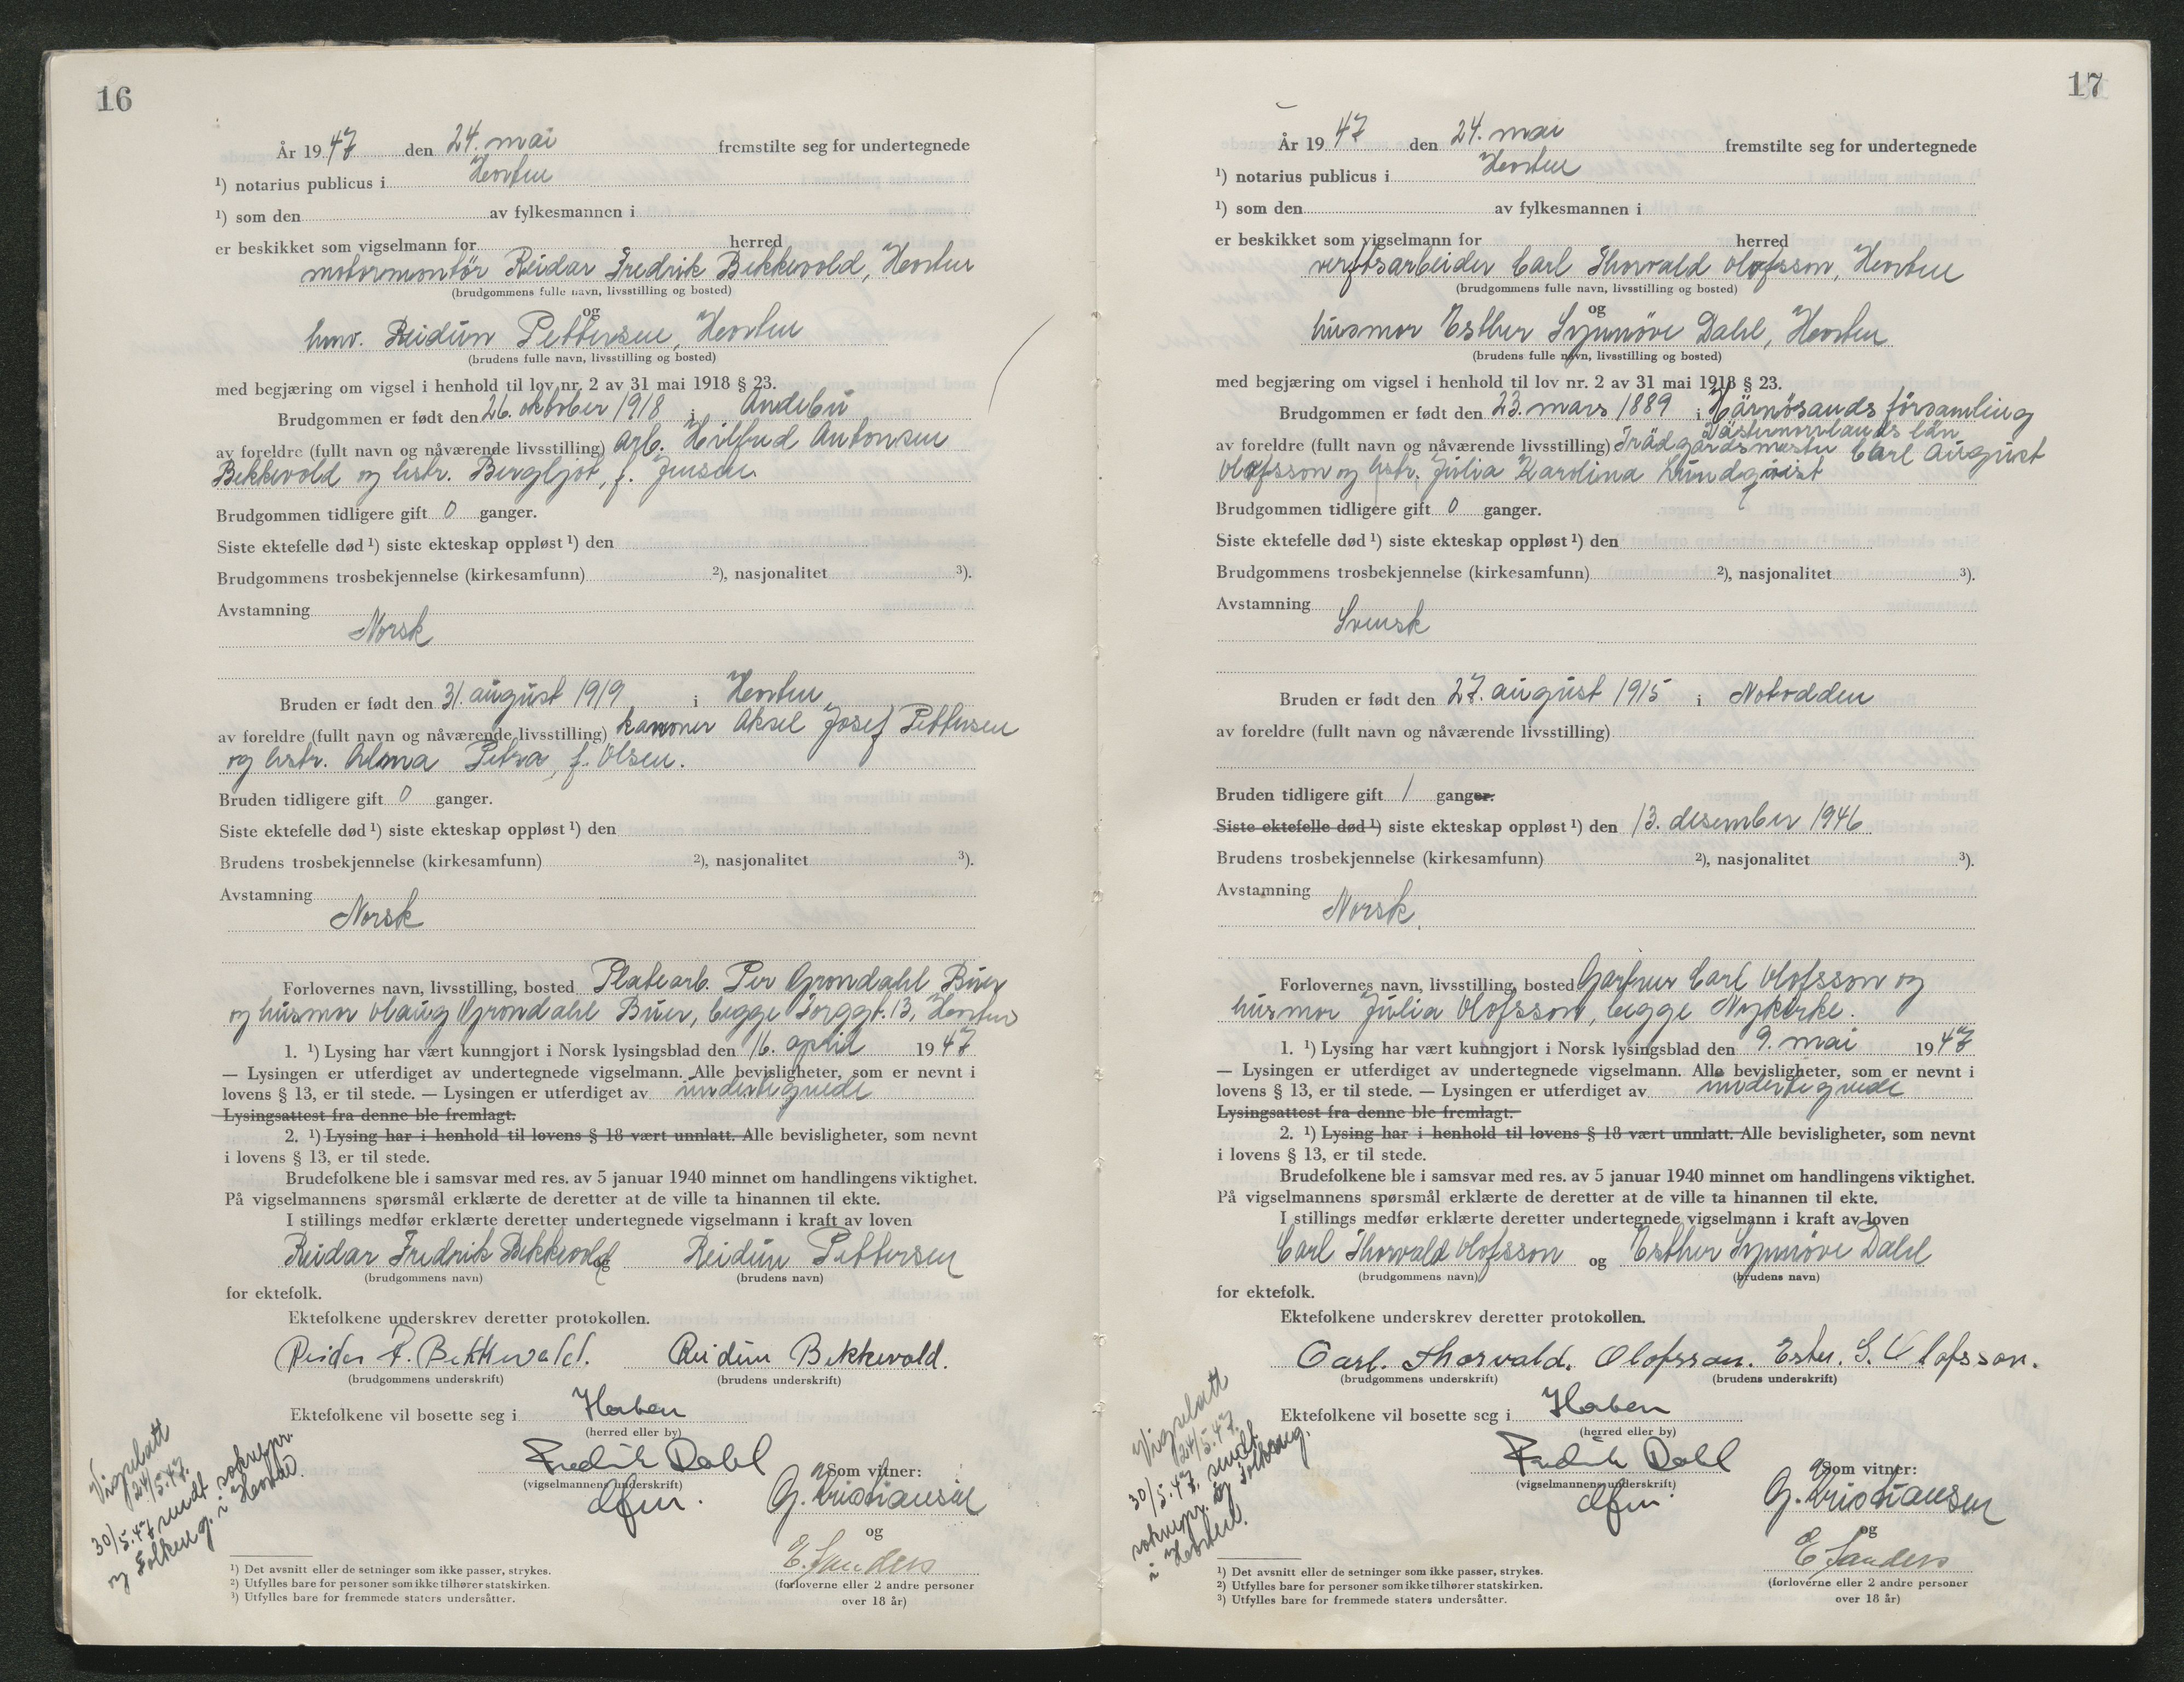 16
År 1947 den 24. mai fremstilte seg for undertegnede
¹) notarius publicus i Horten
¹) som den av fylkesmannen i
er beskikket som vigselmann for herred
motormontör Reidar Fredrik Bekkevold, Horten
(brudgommens fulle navn, livsstilling og bosted)
og
hmv. Reidun Pettersen, Horten
(brudens fulle navn, livsstilling og bosted)
med begjæring om vigsel i henhold til lov nr. 2 av 31 mai 1918 § 23.
Brudgommen er født den 26. oktober 1918 i Andebu
av foreldre (fullt navn og nåværende livsstilling) arb. Hilbud Antonsen
Bekkevold og hstr. Bergljot, f. Jensen.
Brudgommen tidligere gift 0 ganger.
Siste ektefelle død ¹) siste ekteskap oppløst ¹) den
Brudgommens trosbekjennelse (kirkesamfunn) ²), nasjonalitet ³).
Avstamning
Norsk
Bruden er født den 31. august 1919 i Horten
av foreldre (fullt navn og nåværende livsstilling) kanoner Aksel Josef Pettersen
og hstr. Alma Petra, f. Olsen.
Bruden tidligere gift 0 ganger.
Siste ektefelle død ¹) siste ekteskap oppløst ¹) den
Brudens trosbekjennelse (kirkesamfunn) ²), nasjonalitet ³).
Avstamning
Norsk
Forlovernes navn, livsstilling, bosted Platearb. Per Grøndahl Buer
og husmor Olaug Grøndahl Buer, begge Torggt. 13, Horten
1. ¹) Lysing har vært kunngjort i Norsk lysingsblad den 16. april 1947
— Lysingen er utferdiget av undertegnede vigselmann. Alle bevisligheter, som er nevnt i
lovens § 13, er til stede. — Lysingen er utferdiget av undertegnede
Lysingsattest fra denne ble fremlagt.
2. ¹) Lysing har i henhold til lovens § 18 vært unnlatt. Alle bevisligheter, som nevnt
i lovens § 13, er til stede.
Brudefolkene ble i samsvar med res. av 5 januar 1940 minnet om handlingens viktighet.
På vigselmannens spørsmål erklærte de deretter at de ville ta hinannen til ekte.
I stillings medfør erklærte deretter undertegnede vigselmann i kraft av loven
Reidar Fredrik Bekkevold og Reidun Pettersen
(brudgommens navn) (brudens navn)
for ektefolk.
Ektefolkene underskrev deretter protokollen.
Reidar F. Bekkevold. Reidun Bekkevold.
(brudgommens underskrift) (brudens underskrift)
Ektefolkene vil bosette seg i Horten
(herred eller by)
Fredrik Dahl
(vigselmannens underskrift)
dfm.
Som vitner:
G. Kristiansen
og
E. Sanders
(forloverne eller 2 andre personer
over 18 år)
Vigselatt
24/5.47.
30/5.47 sendt soknepr.
og Folkereg. i Horten.
¹) Det avsnitt eller de setninger som ikke passer, strykes.
²) Utfylles bare for personer som ikke tilhører statskirken.
³) Utfylles bare for fremmede staters undersåtter.
17
År 1947 den 24. mai fremstilte seg for undertegnede
¹) notarius publicus i Horten
¹) som den av fylkesmannen i
er beskikket som vigselmann for herred
verftsarbeider Carl Thorvald Olofsson, Horten
(brudgommens fulle navn, livsstilling og bosted)
og
husmor Esther Synnöve Dahl, Horten
(brudens fulle navn, livsstilling og bosted)
med begjæring om vigsel i henhold til lov nr. 2 av 31 mai 1918 § 23.
Brudgommen er født den 23. mars 1889 i Härnösands församling
Västernorrlands län
av foreldre (fullt navn og nåværende livsstilling) Trädgårdsmester Carl August
Olofsson og hstr. Julia Karolina Lundqvist
Brudgommen tidligere gift 0 ganger.
Siste ektefelle død ¹) siste ekteskap oppløst ¹) den
Brudgommens trosbekjennelse (kirkesamfunn) ²), nasjonalitet ³).
Avstamning
Svensk
Bruden er født den 27. august 1915 i Notodden
av foreldre (fullt navn og nåværende livsstilling)
Bruden tidligere gift 1 ganger.
Siste ektefelle død ¹) siste ekteskap oppløst ¹) den 13. desember 1946
Brudens trosbekjennelse (kirkesamfunn) ²), nasjonalitet ³).
Avstamning
Norsk.
Forlovernes navn, livsstilling, bosted Gartner Carl Olofsson og
husmor Julia Olofsson, begge Nykirke.
1. ¹) Lysing har vært kunngjort i Norsk lysingsblad den 9. mai 1947
— Lysingen er utferdiget av undertegnede vigselmann. Alle bevisligheter, som er nevnt i
lovens § 13, er til stede. — Lysingen er utferdiget av undertegnede
Lysingsattest fra denne ble fremlagt.
2. ¹) Lysing har i henhold til lovens § 18 vært unnlatt. Alle bevisligheter, som nevnt
i lovens § 13, er til stede.
Brudefolkene ble i samsvar med res. av 5 januar 1940 minnet om handlingens viktighet.
På vigselmannens spørsmål erklærte de deretter at de ville ta hinannen til ekte.
I stillings medfør erklærte deretter undertegnede vigselmann i kraft av loven
Carl Thorvald Olofsson og Esther Synnöve Dahl
(brudgommens navn) (brudens navn)
for ektefolk.
Ektefolkene underskrev deretter protokollen.
Carl. Thorvald. Olofsson. Ester. S. Olofsson.
(brudgommens underskrift) (brudens underskrift)
Ektefolkene vil bosette seg i Horten
(herred eller by)
Fredrik Dahl
(vigselmannens underskrift)
dfm.
Som vitner:
G. Kristiansen
og
E Sanders
(forloverne eller 2 andre personer
over 18 år)
Vigselatt
24/5.47.
30/5.47. sendt
soknepr. og Folkereg.
i Horten.
¹) Det avsnitt eller de setninger som ikke passer, strykes.
²) Utfylles bare for personer som ikke tilhører statskirken.
³) Utfylles bare for fremmede staters undersåtter.